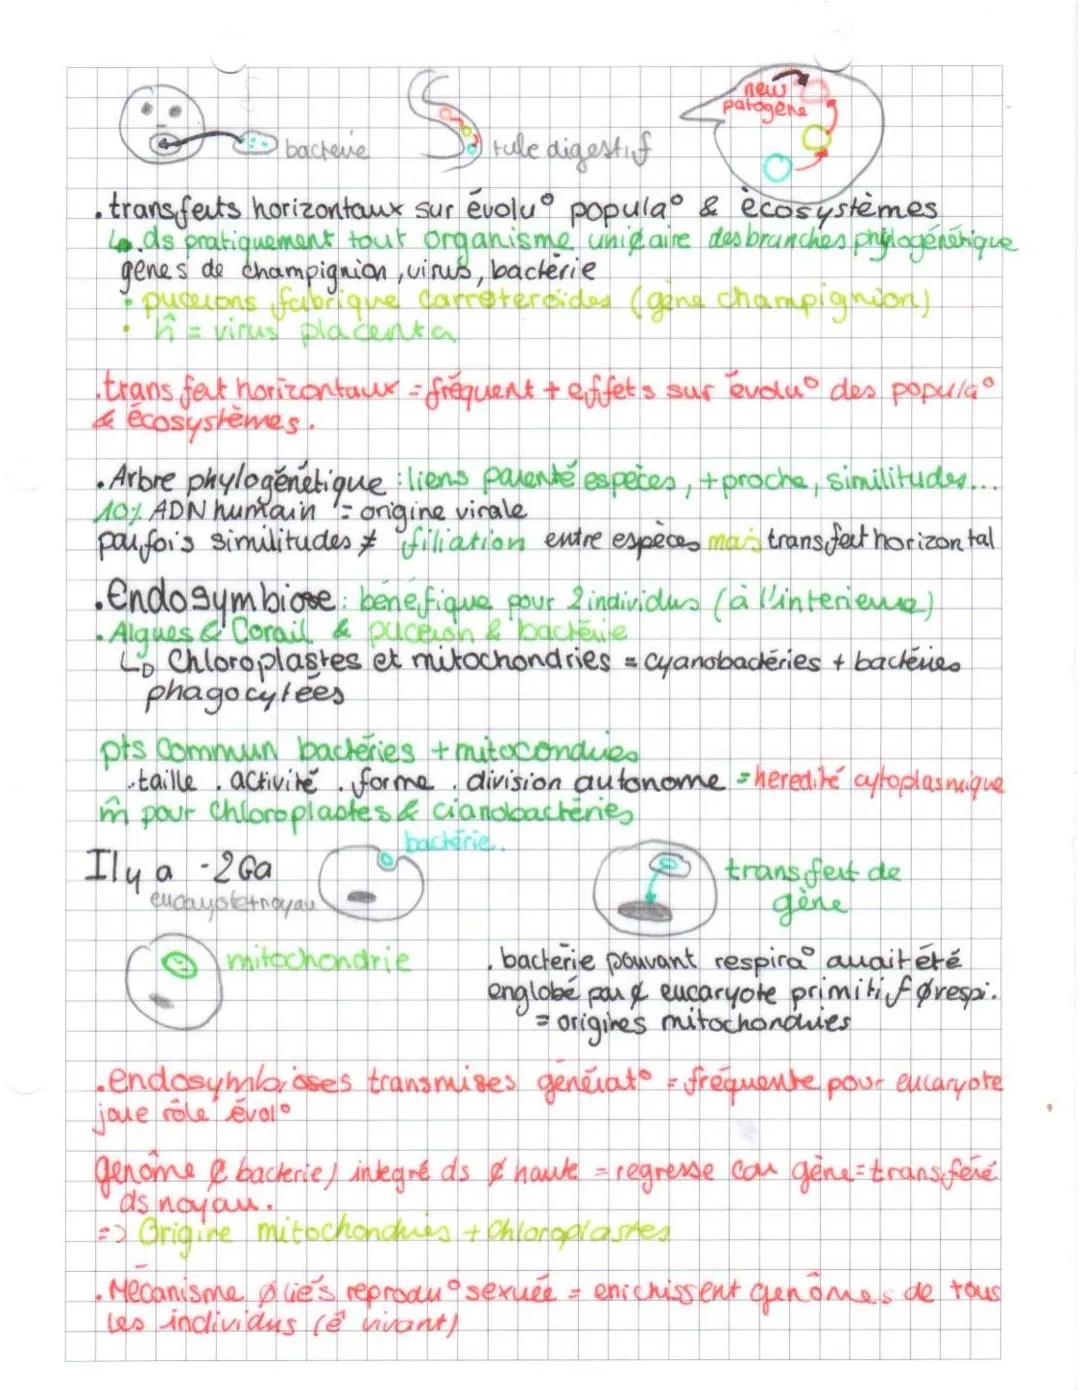 new
patogène
bactérie
tube digestif
. transferts horizontaux sur évolu° popula° & écosystèmes
↳ . ds pratiquement tout organisme, unic¢aire des branches phylogénétique
gènes de champignion, virus, bactérie
• pucerons fabrique carroteroïdes (gène champignion)
• ĥ = virus placenta
. transfert horizontaux = fréquent + effets sur évolu° des popula°
& écosystèmes.
. Arbre phylogénétique : liens parenté espèces, + proche, similitudes...
10% ADN humain = origine virale
parfois similitudes ≠ filiation entre espèces mais transfert horizontal
. Endosymbiose : bénéfique pour 2 individus (à l'interieure)
. Algues & Corail & puceron & bactérie
↳ Chloroplastes et mitochondries = cyanobactéries + bactéries
phagocytées
pts commun bactéries + mitocondries
. taille . activité . forme . division autonome = heredité cytoplasmique
m̂ pour chloroplastes & cianobactéries
bactérie.
Il y a -2 Ga
eucaryote+noyau
transfert de
gène
mitochondrie
. bactérie pouvant respira° aurait été
englobé par ¢ eucaryote primitif ø respi.
= origines mitochondries
. endosymbioses transmises générat° = fréquente pour eucaryote
joue rôle évol°
génome (¢ bacterie) integré ds ¢ haute = regresse car gène = transféré
ds noyau.
=> Origine mitochondries + chloroplastes
. Mécanisme ø liés reprodu° sexuée = enichissent génômes de tous
les individus (ê vivant)